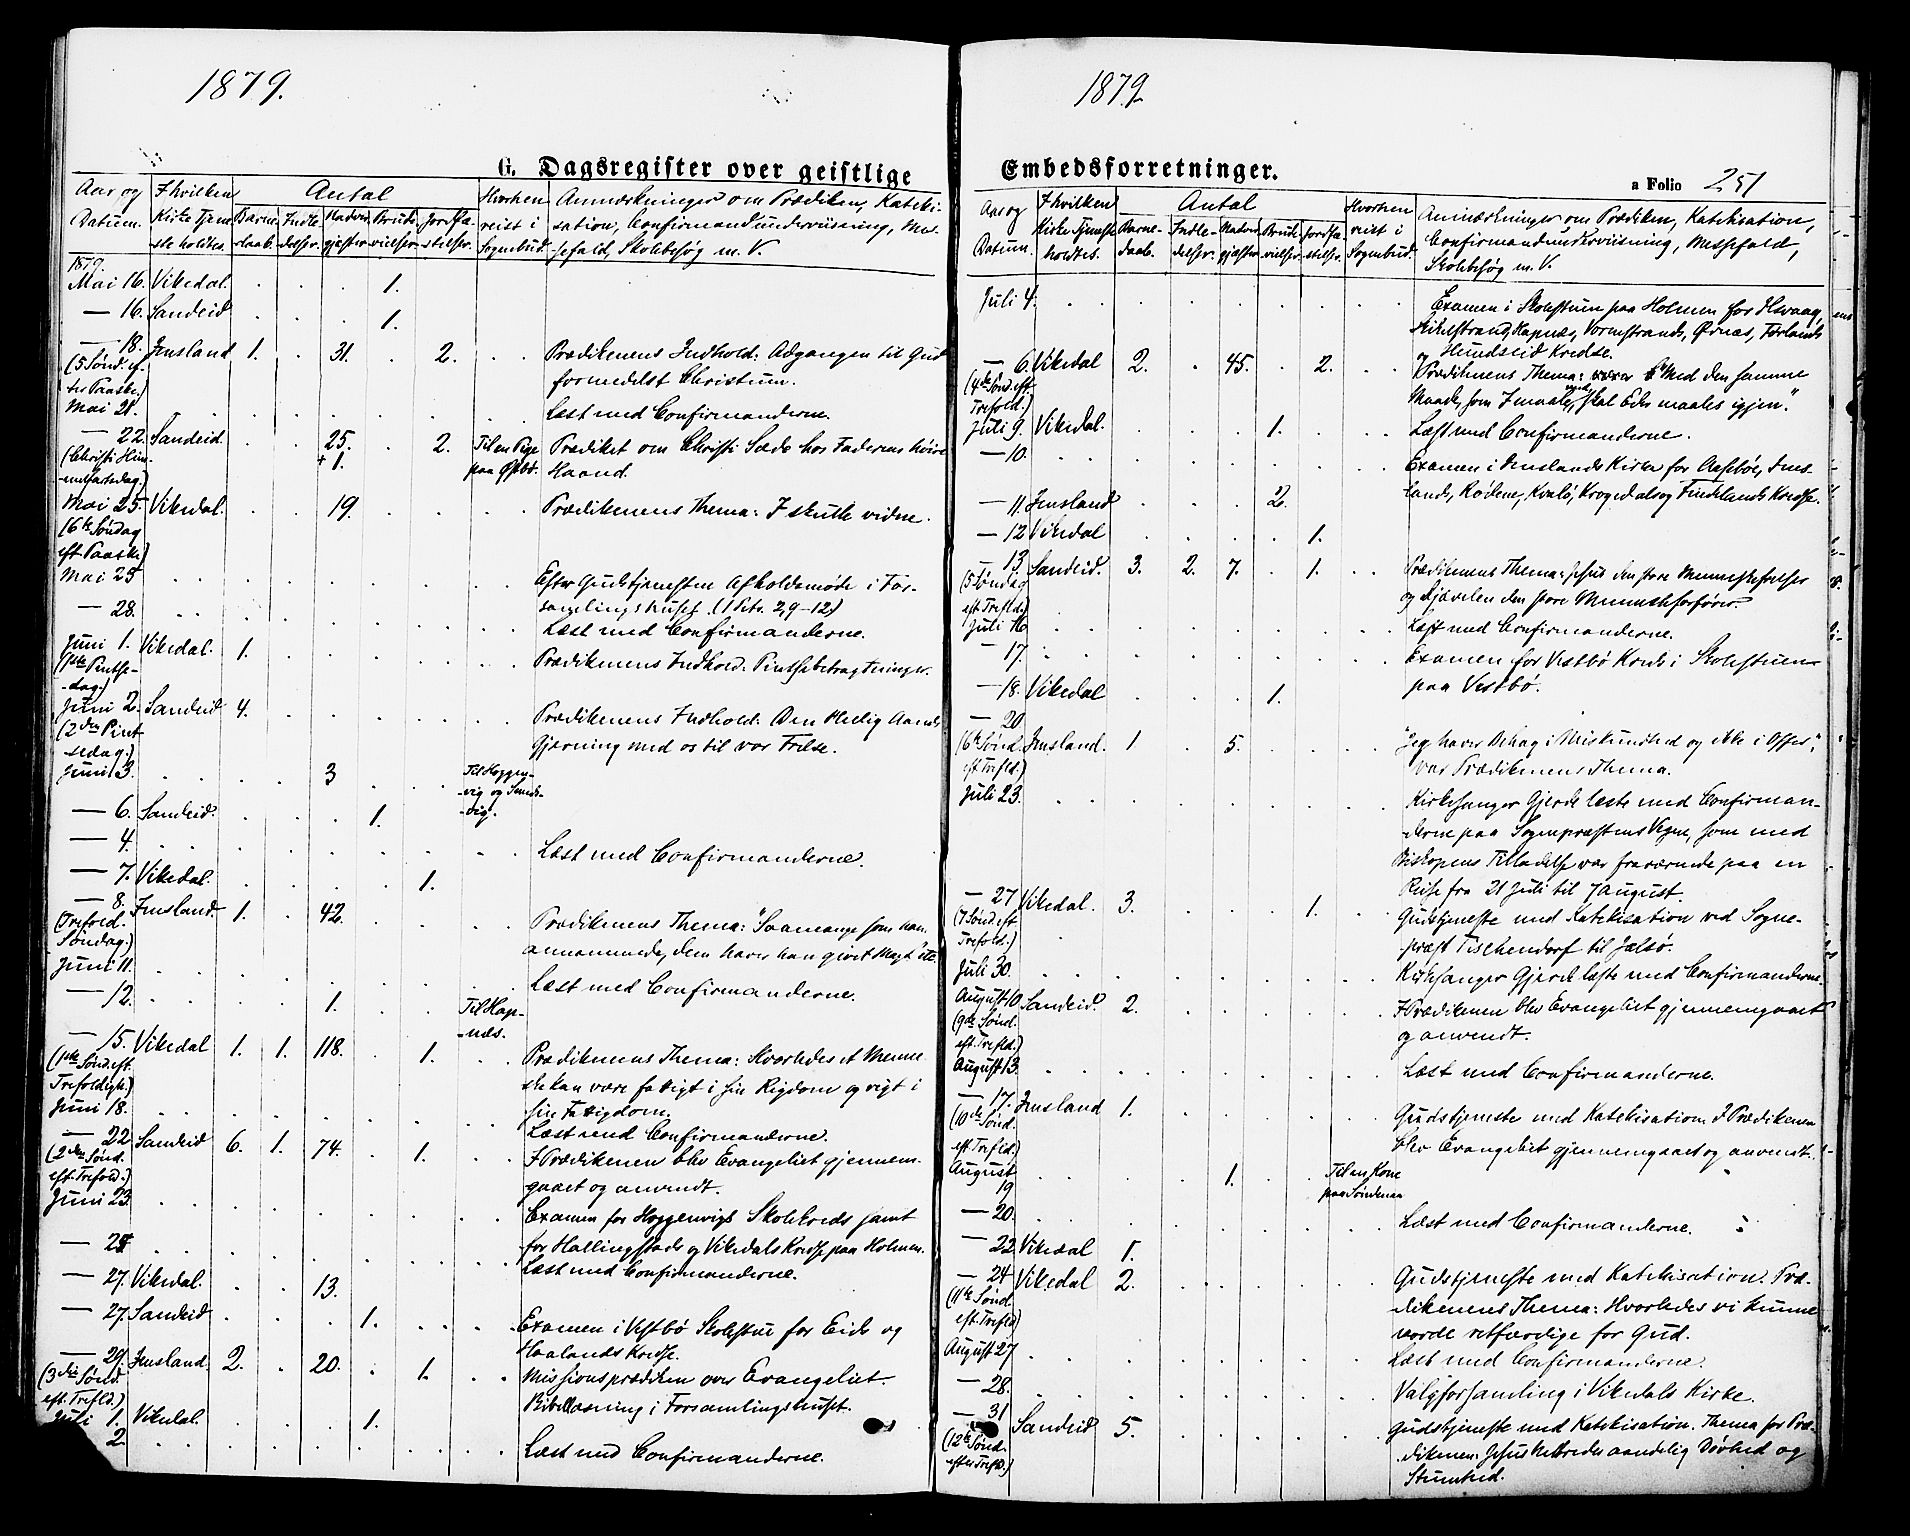 1879.
G. Dagsregister over geistlige
Aar og Datum.
I hvilken Kirke Tjeneste holdtes.
Antal
Barnedaab.
Indledelser.
Nadvergjæster
Brudevielser.
Jordfæstelser.
Hvorhen reist i Sognebud.
Anmærkninger om Prædiken, Kateki-
sation, Confirmandundervisning, Mes-
sefald, Skolebesøg m. V.
1879.
Mai 16. Vikedal. . . . 1.
— 16. Sandeid . . . 1.
— 18. Imsland 1. . 31. . 2. . . Prædikenens Indhold: Adgangen til Gud
(5 Sønd. ef-
ter Paaske.) formedelst Christum.
Mai 21. . . . . . . Læst med Confirmanderne.
— 22. Sandeid. . . 25. . 2. Til en Pige Prædiket om Christi Sæde hos Faderens høire
(Christi Him- + 1. paa Østbø. Haand.
melfartsdag.)
Mai 25. Vikedal. . . 19. . . . . Prædikenens Thema: I skulle vidne.
(6te Søndag
eft. Paaske)
Mai 25 . . . . . . . Efter Gudstjenesten Afholdsmøde i For-
samlingshuset. (1 Petr. 2,9-12)
— 28. . . . . . . . Læst med Confirmanderne.
Juni 1. Vikedal. 1. . . . . . . Prædikenens Indhold: Pintsebetragtninger.
(1ste Pintse-
-dag.)
Juni 2. Sandeid 4. . . . . . . Prædikenens Indhold: Den Hellig Aands
(2den Pint
sedag.) Gjerning med os til vor Frelse.
Juni 3. . . . 3 . . Til Hoggen-
vig og
-vig.
— 6. Sandeid. . . . 1.
— 4. . . . . . . . Læst med Confirmanderne.
— 7. Vikedal. . . . . 1.
— 8. Imsland. 1. . 42. . . . . Prædikenens Thema: "Saamange som han
(Trefold.
Søndag.) annammede, dem haver han givet Magt" etc.
Juni 11. . . . . . . Læst med Confirmanderne.
— 12. . . . 1. . . Til Hap-
-næs.
— 15. Vikedal 1. 1. 118. . 1. . . Prædikenens Thema: Hvorledes et Menne-
(1ste Sønd. eft.
Trefoldigh.) ske kan være fattigt i sin Rigdom og rigt i
sin Fattigdom.
Juni 18. . . . . . . Læst med Confirmanderne.
— 22 Sandeid 6. 1. 74. . 1. . . I Prædikenen blev Evangeliet gjennem-
(2den Sønd.
eft. Trefold.) gaaet og anvendt.
Juni 23 . . . . . . . Examen for Hoggenvigs Skolekreds samt
for Hallingstads og Vikedals Kredse paa Holmen.
— 25. . . . . . . . Læst med Confirmanderne.
— 27. Vikedal. . . 13.
— 27. Sandeid . . . 1. . . . Examen i Vestbø Skolestue for Eide og
Haalands Kredse.
— 29. Imsland. 2. . 20. . 1. . . Missionsprædiken over Evangeliet.
(3die Sønd.
eft. Trefld.) Bibellæsning i Forsamlingshuset.
Juli 1. Vikedal. . . . 1.
2. . . . . . . . Læst med Confirmanderne.
1879.
Embedsforretninger.
a Folio 251
Aar og Datum.
I hvilken Kirke Tjeneste holdtes.
Antal
Barnedaab.
Indledelser.
Nadvergjæster
Brudevielser.
Jordfæstelser.
Hvorhen reist i Sognebud.
Anmærkninger om Prædiken, Katekisation,
Confirmandundervisning, Messefald,
Skolebesøg m. V.
Juli 4. . . . . . . Examen i Skolestuen paa Holmen for Ilsvaag,
Hapnæs, Vormestrands, Ørnæs, Førlands
og Hundseid Kredse.
— 6. Vikedal 2. . 45. . 2. . . Prædikenens Thema: "Med den samme
(4de Sønd. eft
Trefold.) Maade, som I maale med, skal Eder maales igjen."
Juli 9. Vikedal. . . . 1. . . Læst med Confirmanderne.
— 10. . . . . . . . Examen i Imslands Kirke for Aasebø, Ims-
lands, Rødene, Kvalø, Krogedals og Fiudelands Kredse.
— 11. Imsland . . . 2.
— 12 Vikedal . . . . 1.
— 13. Sandeid. 3. 2. 7. . 1. . . Prædikenens Thema: Jesus den store Menneskefrelser
(5 Søndag
eft. Trefld.) og Djævelen den store Menneskeforfører.
Juli 16 . . . . . . . Læst med Confirmanderne.
— 17. . . . . . . . Examen for Vestbø Kreds i Skolestuen
paa Vestbø.
— 18. Vikedal . . . 1.
— 20
(6te Sønd. Imsland. 1. . 5. . . . . "Jeg haver Behag i Miskundhed og ikke i Offer",
eft Trefld.) var Prædikenens Thema.
Juli 23. . . . . . . . Kirkesanger Gjerde læste med Confirman-
derne paa Sognepræstens Vegne, som med
Biskopens Tilladelse var fraværende paa en
Reise fra 21 Juli til 7 August.
— 27 Vikedal. 3. . . . 1. . . Gudstjeneste med Katekisation ved Sogne-
(7 Sønd. eft.
Trefold.) præst Tischendorf til Jelsø.
Juli 30. . . . . . . . Kirkesanger Gjerde læste med Confirmanderne.
August 10. Sandeid. 2. . . . . . . I Prædikenen blev Evangeliet gjennemgaaet
(9de Sønd.
eft. Trefld.) og anvendt.
August 13. . . . . . . . Læst med Confirmanderne.
— 17. Imsland 1. . . . . . . Gudstjeneste med Katekisation. I Prædikenen
(10de Sønd.
eft. Trefld.) blev Evangeliet gjennemgaaet og anvendt.
August
19 . . . 1. . . Til en Kone
paa Søndenaa
— 20. . . . . . . . Læst med Confirmanderne.
— 22 Vikedal 1.
— 24 Vikedal 2. . . . . . . Gudstjeneste med Katekisation. Præ-
(11te Sønd.
eft. Trefld) dikenens Thema: Hvorledes vi kunne
vorde retfærdige for Gud.
August 27 . . . . . . . Læst med Confirmanderne.
— 28. . . . . . . . Valgforsamling i Vikedals Kirke.
— 31 Sandeid 5. . . . . . . Gudstjeneste med Katekisation. Thema for Præ-
(12te Sønd.
efter Trefld.) dikenen: Jesus helbreder aandelig Døvhed og
Stumhed.